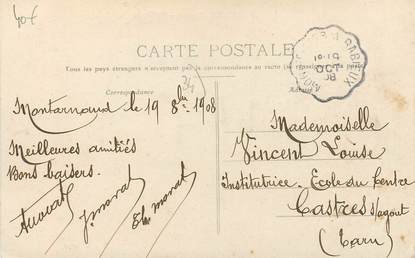 40€
CARTE POSTALE
Tous les pays étrangers n'acceptent pas la correspondance au recto (se renseigner à la poste)
Correspondance
Adresse
Montarnaud le 19 8bre 1908
Meilleures amitiés
Bons baisers.
Mademoiselle
Vincent Louise
Institutrice. Ecole du Centre
Castres s/agout
(Tarn)